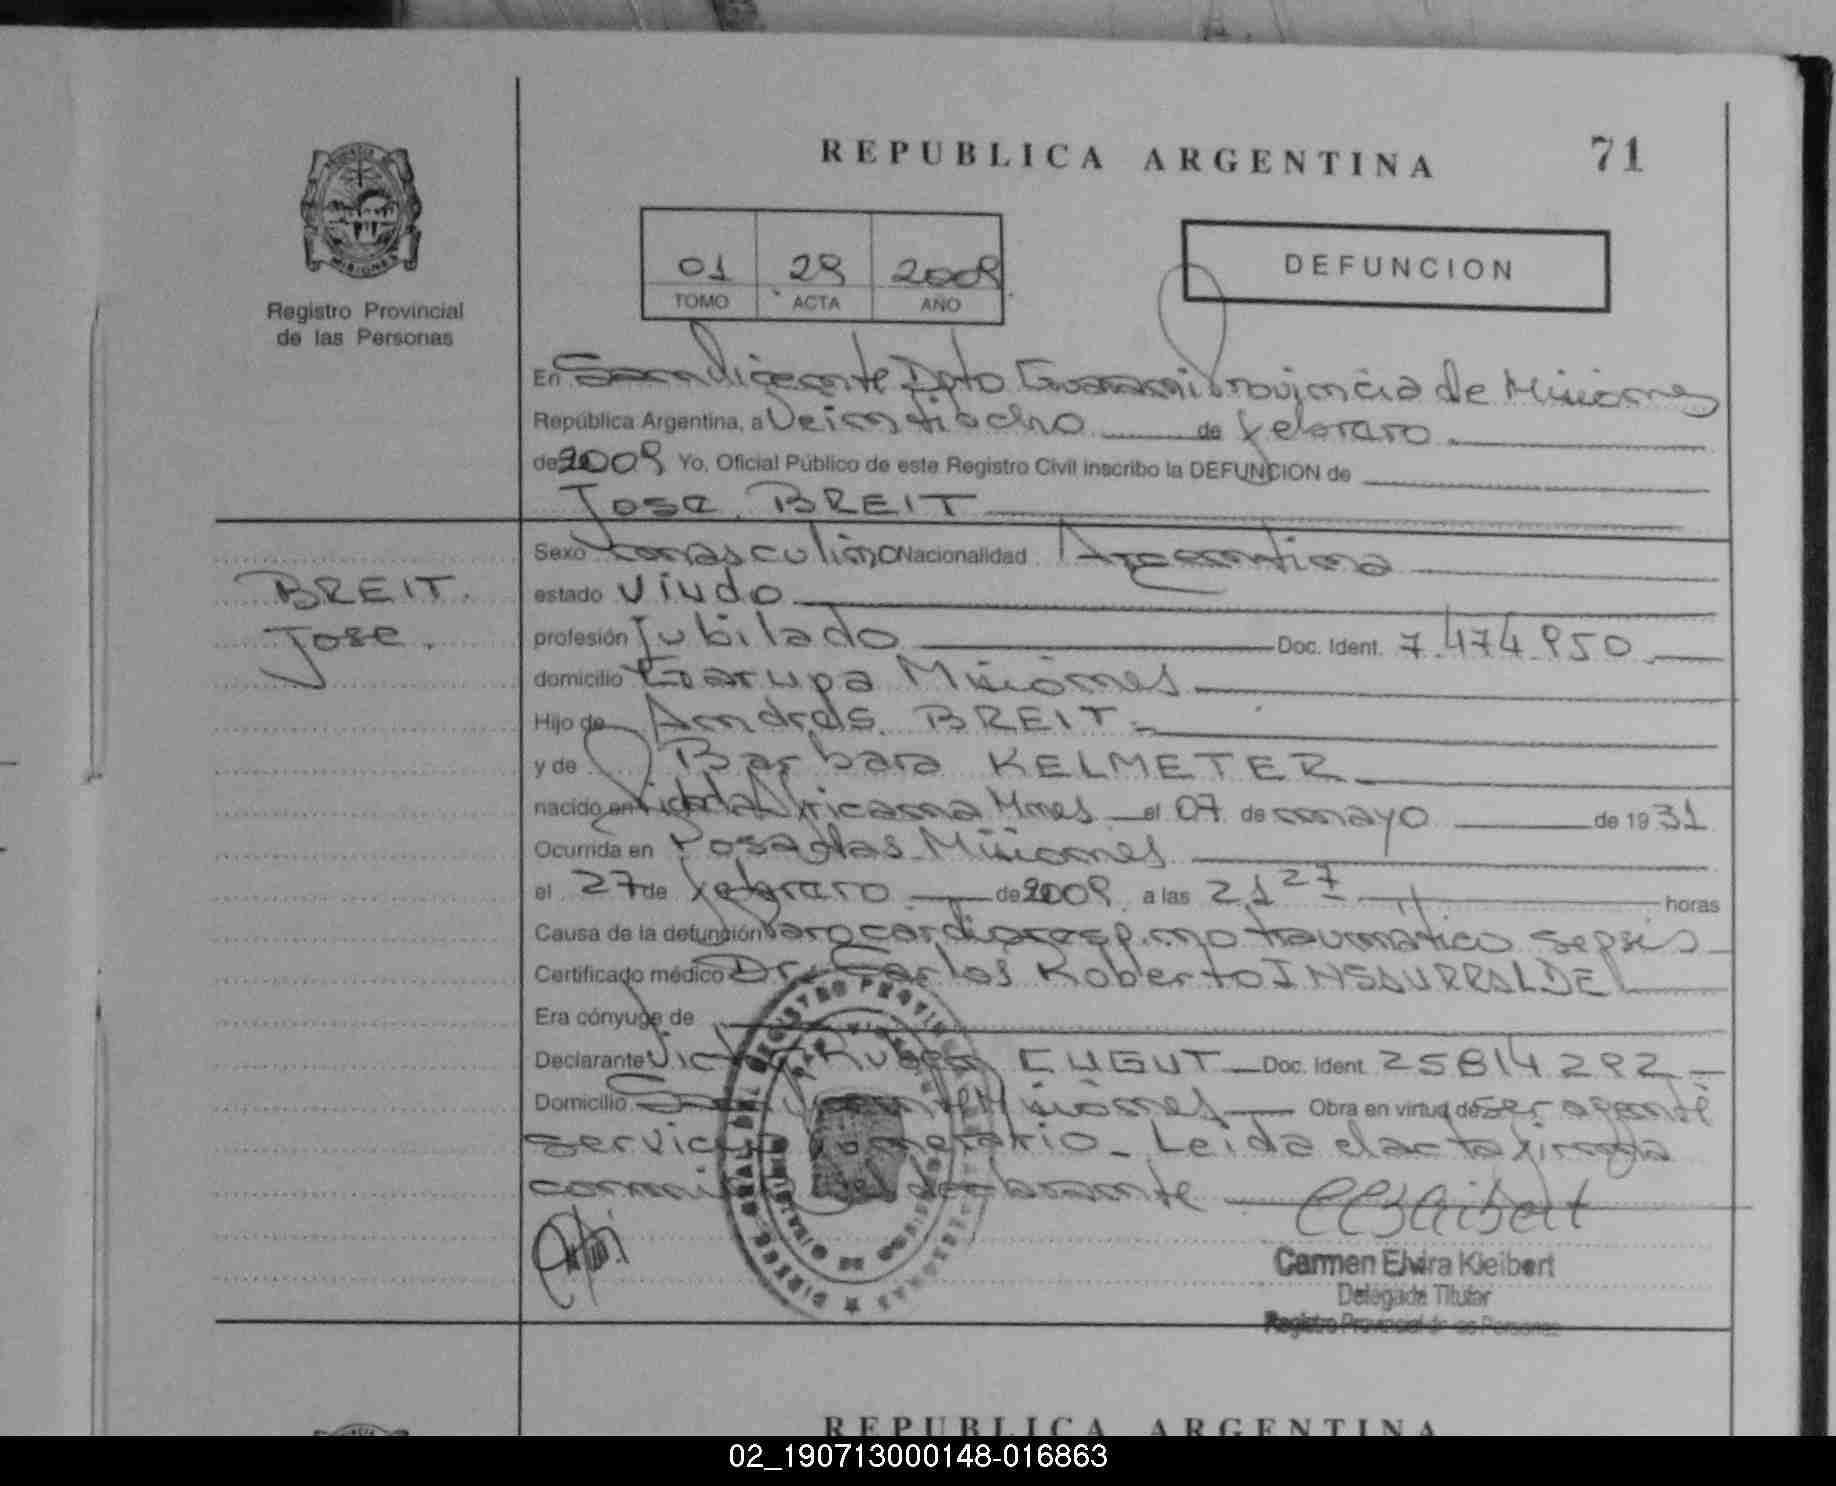 REPUBLICA ARGENTINA 71
MISIONES
Registro Provincial
de las Personas
01 29 2009
TOMO ACTA AÑO
DEFUNCION
En San Vicente Dpto Guarani Provincia de Misiones
República Argentina, a Veintiocho de febrero
de 2009 Yo, Oficial Público de este Registro Civil inscribo la DEFUNCION de
Jose BREIT
BREIT
Jose
Sexo masculino Nacionalidad Argentina
estado Viudo
profesión Jubilado Doc. Ident. 7.474.950
domicilio Garupa Misiones
Hijo de Andres BREIT
y de Barbara KELMETER
nacido en Picada Africana Mnes el 07 de mayo de 1931
Ocurrida en Posadas Misiones
el 27 de febrero de 2009 a las 21 27 horas
Causa de la defunción Paro cardioresp. no traumatico sepsis
Certificado médico Dr. Carlos Roberto INSAURRALDE
Era cónyuge de
Declarante Victor Ruben CHGUT Doc. Ident. 25814292
Domicilio San Vicente Misiones Obra en virtud de ser agente
servicio funerario. Leida el acta firma
conmigo el declarante
Carmen Elvira Kleibert
Delegada Titular
Registro Provincial de las Personas
REPUBLICA ARGENTINA
02_190713000148-016863